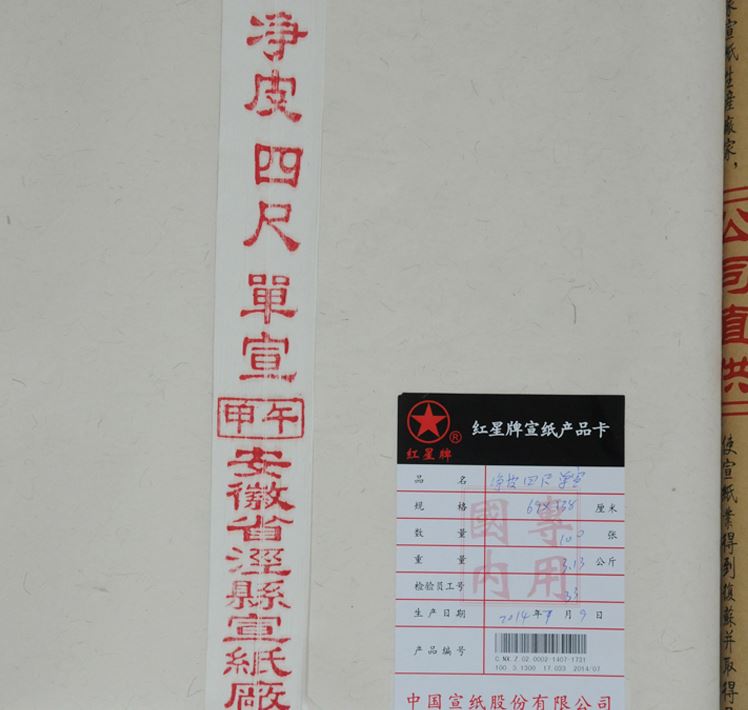 净皮
四尺
單宣
甲午
安徽省涇縣宣紙廠
红星牌®
红星牌宣纸产品卡
品名 净皮四尺单宣
规格 69×138 厘米
数量 100 张
重量 3.13 公斤
检验员工号 33
生产日期 2014年7月9日
产品编号
C.NX.Z.02.0002-1407-1731
100 3.1300 17.033 2014/07
國内專用
中国宣纸股份有限公司
宣紙生產廠家，
公司直供
使宣紙業得到復蘇并取得